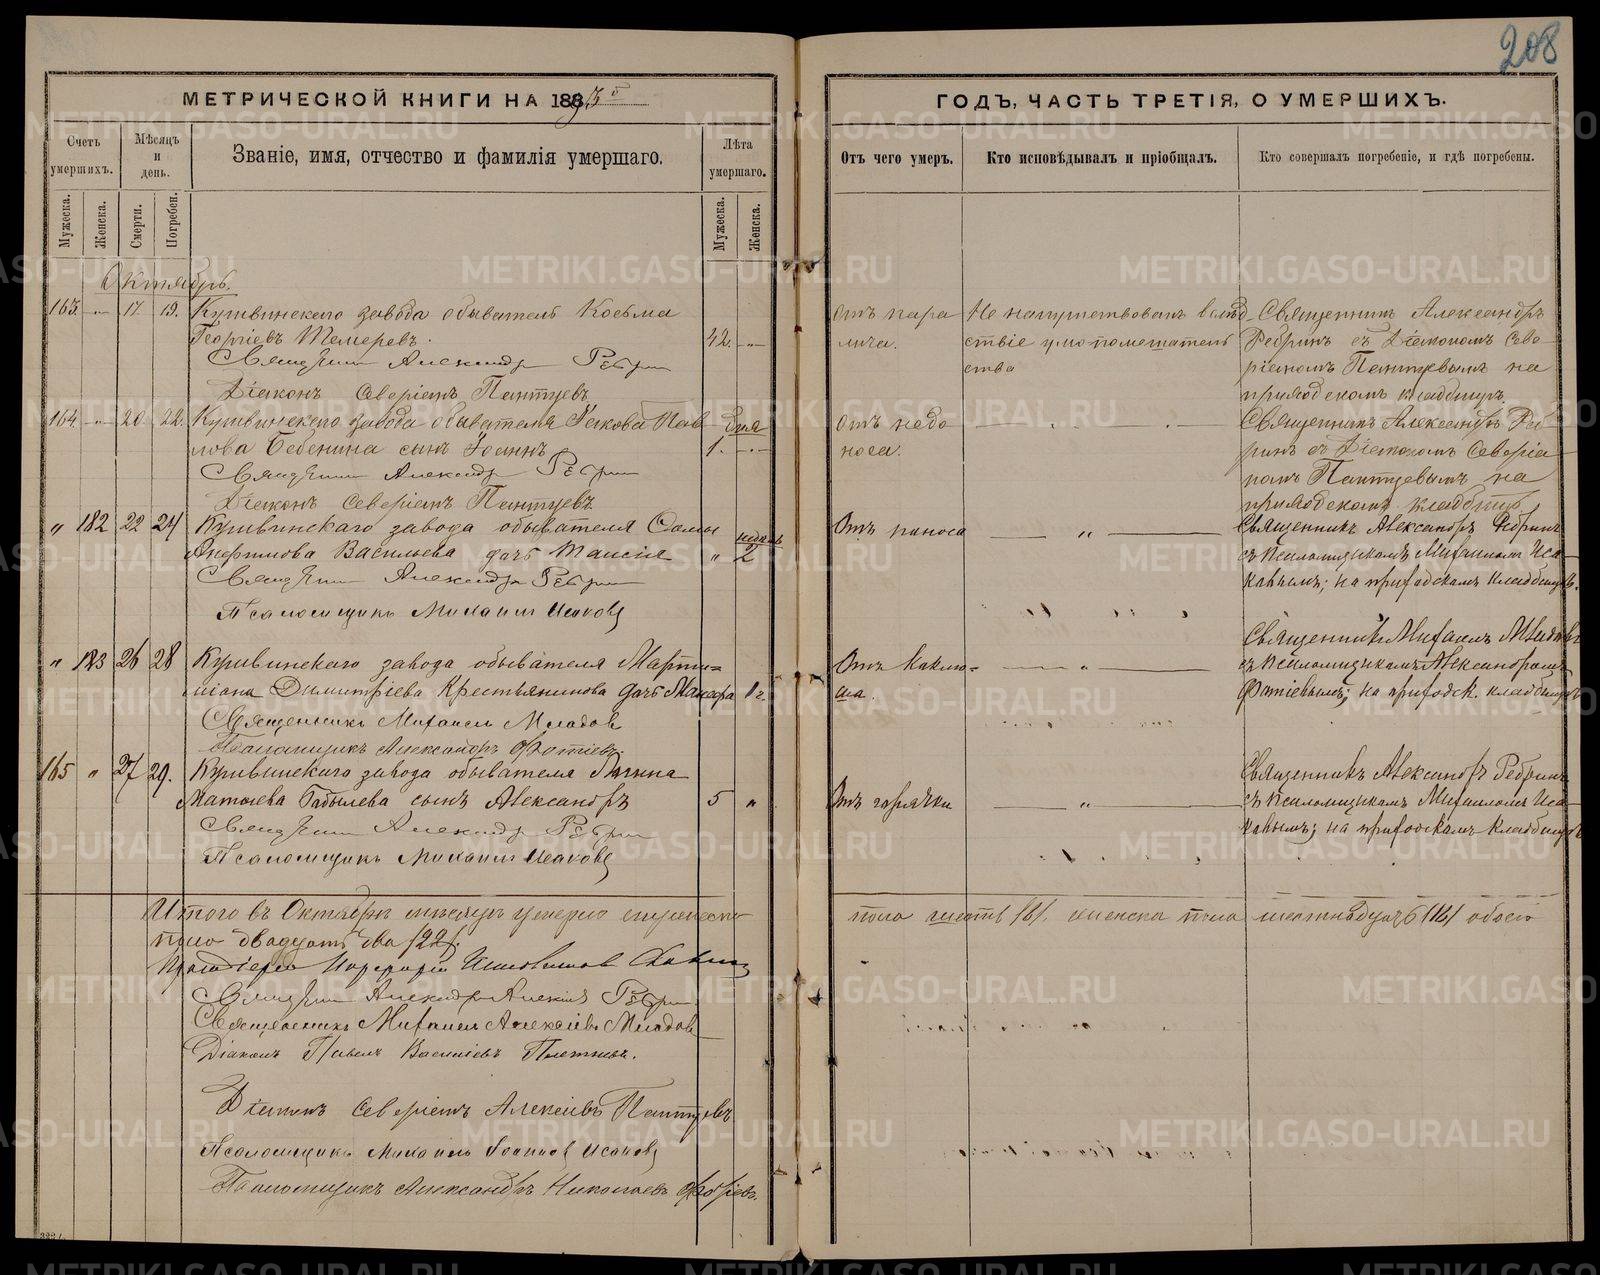 208
МЕТРИЧЕСКОЙ КНИГИ НА 1893 г.
ГОДЪ, ЧАСТЬ ТРЕТІЯ, О УМЕРШИХЪ.
Счетъ умершихъ.
Мѣсяцъ и день.
Званіе, имя, отчество и фамилія умершаго.
Лѣта умершаго.
Отъ чего умеръ.
Кто исповѣдывалъ и пріобщалъ.
Кто совершалъ погребеніе, и гдѣ погребены.
Мужеска.
Женска.
Смерти.
Погребен.
Мужеска.
Женска.
Октябрь.
163. - 17. 19. Кушвинскаго завода обыватель Косьма
Георгіевъ
42. -
Отъ пара
лича.
Не напутствованъ вслѣд
ствіе умопомешатель
ства
Священникъ Александръ
Ребринъ съ Діакономъ Севе
ріаномъ на
приходскомъ кладбищѣ.
Священникъ Александръ Ребрин
Діаконъ Северіанъ
164. - 20. 22. Кушвинскаго завода обывателя Іакова Пав
лова Бебенина сынъ Іоаннъ
Дня
1. -
Отъ недо
носа.
Священникъ Александръ Реб
ринъ съ Діакономъ Северіа
номъ на
приходскомъ кладбищѣ
Священникъ Александръ Ребрин
Діаконъ Северіанъ
" 182 22 24 Кушвинскаго завода обывателя
Анфимова Васильева дочь Таисія
недѣль
" 2
Отъ поноса
"
Священникъ Александръ Ребринъ
съ Псаломщикомъ Михаиломъ Иса
ковымъ; на приходскомъ кладбищѣ.
Священникъ Александръ Ребрин
Псаломщикъ Михаилъ Исаковъ
" 183 26 28 Кушвинскаго завода обывателя Марти=
миана Димитріева Крестьянинова дочь
1 г.
Отъ Коклю=
ша.
"
Священникъ Михаилъ Младовъ
съ Псаломщикомъ Александромъ
Фотіевымъ; на приходск. кладбищѣ
Священникъ Михаилъ Младов
Псаломщикъ Александръ Фотіевъ.
165 " 27 29. Кушвинскаго завода обывателя
Матвѣева сынъ Александръ
5 "
Отъ горячки
"
Священникъ Александръ Ребринъ
съ Псаломщикомъ Михаиломъ Иса
ковымъ; на приходскомъ кладбищѣ
Священникъ Александръ Ребрин
Псаломщикъ Михаилъ Исаковъ
Итого въ Октябрѣ мѣсяцѣ умерло мужеска
пола шесть /6/. женска пола шестнадцать /16/ обоего
пола двадцать два /22/.
Протоіерей
Священникъ Александръ Алексіевъ Ребрин
Священникъ Михаилъ Алексіевъ Младовъ
Діаконъ Павелъ Василіевъ
Діаконъ Северіанъ Алексіевъ
Псаломщикъ Михаилъ Іоанновъ Исаковъ
Псаломщикъ Александръ Николаевъ Фотіевъ.
METRIKI.GASO-URAL.RU